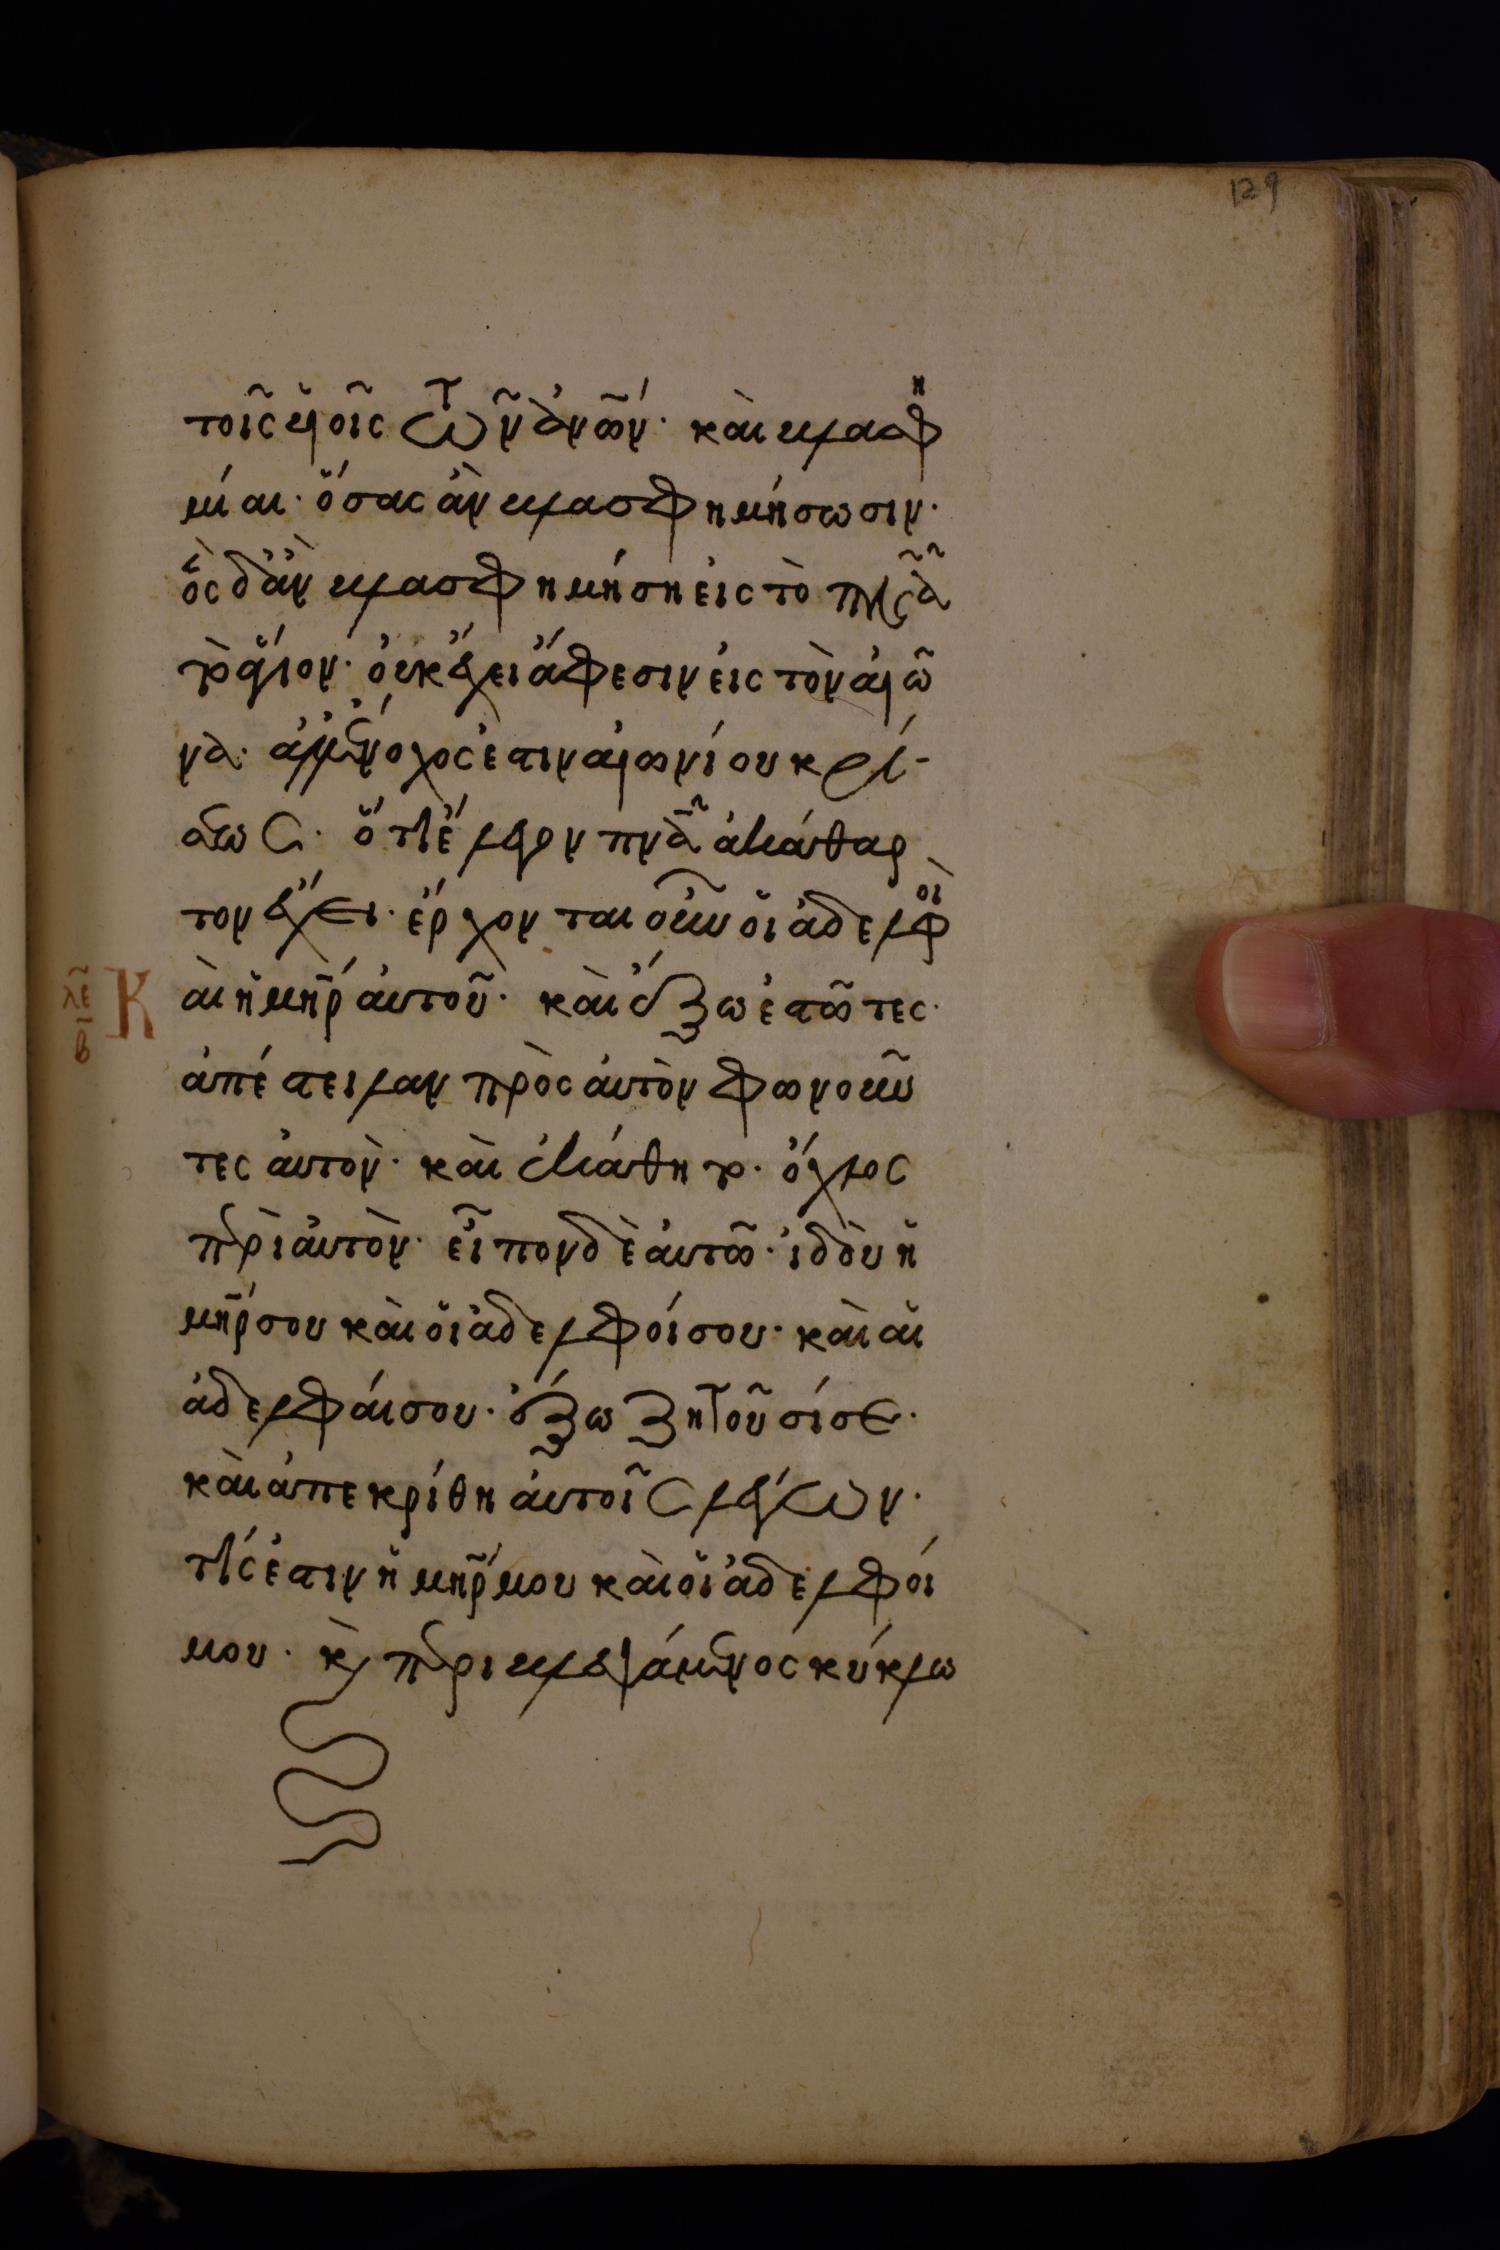 129
τοῖς ϋἱοῖς τῶν ἀνῶν· καὶ βλασφη
μίαι· ὅσας ἂν βλασφημήσωσιν·
ὃς δ ἂν βλασφημήση εἰς τὸ πνᾶ
τὸ ἅγιον· οὐκ ἔχει ἄφεσιν εἰς τὸν αἰῶ
να· ἀλλ ἔνοχός ἐστιν αἰωνίου κρί-
σεως· ὅτι ἔλεγον πνᾶ ἀκάθαρ
τον ἔχει· ἔρχονται οὖν οἱ ἀδελφοὶ
αὶ ἡ μηρ αὐτοῦ· καὶ ἔξω ἑστῶτες·
λε
β
Κ
ἀπέστειλαν πρὸς αὐτὸν φωνοῦν
τες αὐτὸν· καὶ ἐκάθητο· ὄχλος
περὶ αὐτὸν· εἶπον δὲ αὐτῶ· ἰδοὺ ἡ
μηρ σου καὶ οἱ ἀδελφοί σου· καὶ αἱ
ἀδελφαί σου· ἔξω ζητοῦσί σε·
καὶ ἀπεκρίθη αὐτοῖς λέγων·
τίς ἐστιν ἡ μηρ μου καὶ οἱ ἀδελφοί
μου· κ περιβλεψάμενος κύκλω